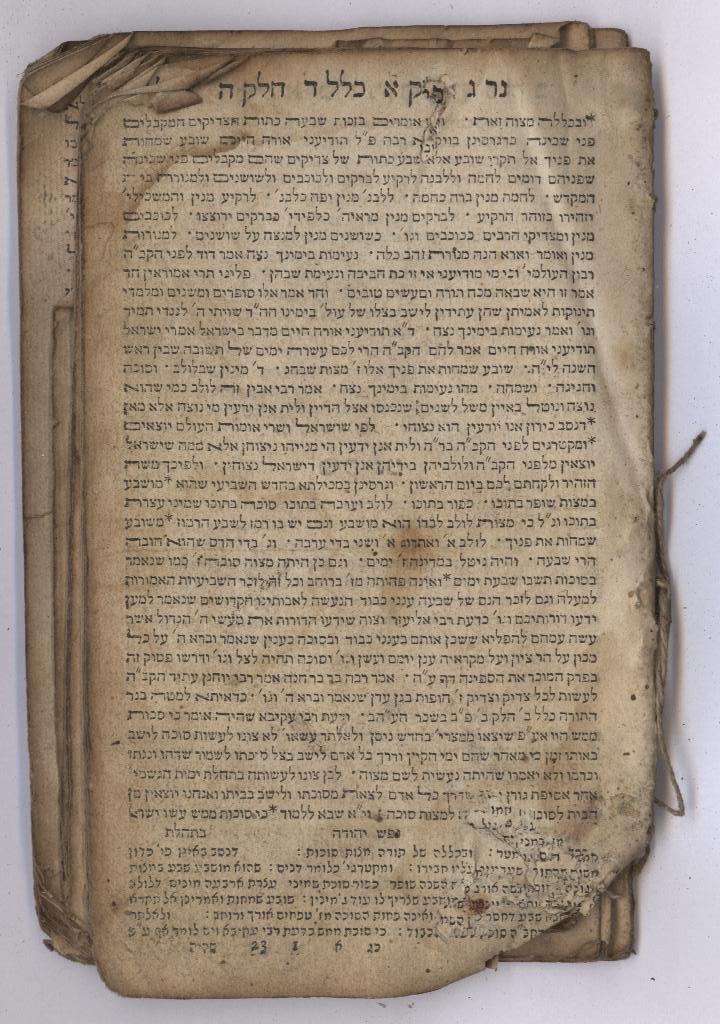 נר ג פרק א כלל ד חלק ה
*ובכללה מצוה זאת אומרים בזכות שבעה כתות צדיקים המקבלים
פני שכינה כדגרסינן בויקרא רבה פ"ל תודיעני אורח חיים שובע שמחות
את פניך אל תקרי שובע אלא שבע כתות של צדיקים שהם מקבלים פני שכינה
שפניהם דומים לחמה וללבנה לרקיע לברקים ולכוכבים ולשושנים ולמנורת בית
המקדש לחמה מנין ברה כחמה ללבנ' מנין יפה כלבנ' לרקיע מנין והמשכילי'
יזהירו כזוהר הרקיע לברקים מנין מראיה' כלפידי' כברקים ירוצצו לכוכבים
מנין ומצדיקי הרבים ככוכבים וגו' כשושנים מנין למנצח על שושנים למנורות
מנין ואומר וארא הנה מנורת זהב כלה נעימות בימינך נצח אמר דוד לפני הקב"ה
רבון העולמי' וכי מי מודיעני אי זו כת חביבה ונעימת שבהן פליגי תרי אמוראין חד
אמר זו היא שבאה מכח תורה ומעשים טובים וחד אמר אלו סופרים ומשנים ומלמדי
תינוקות לאמיתן שהן עתידין לישב בצלו של עול' בימינו הה"ד שויתי ה' לנגדי תמיד
וגו' ואמר נעימות בימינך נצח ד"א תודיעני אורח חיים מדבר בישראל אמרי ישראל
תודיעני אורח חיים אמר להם הקב"ה הרי לכם עשרה ימים של תשובה שבין ראש
השנה לי"ה שובע שמחות את פניך אלו ז' מצות שבחג ד' מינין שבלולב וסוכה
וחגיגה ושמחה מהו נעימות בימינך נצח אמר רבי אבין זה לולב כמי שהוא
נוצח ונוטל באיין משל לשנים שנכנסו אצל הדיין ולית אנן ידעין מי נוצח אלא מאן
*דנסב כירון אנו יודעין הוא נצוחו לפי שישראל ושרי אומות העולם יוצאים
*ומקטרגים לפני הקב"ה בר"ה ולית אנן ידעין הי מנייהו ניצוחן אלא ממה שישראל
יוצאין מלפני הקב"ה ולולביהן בידיהן אנן ידעין דישראל נצוחין ולפיכך משה
הזהיר ולקחתם לכם ביום הראשון וגרסינן במכילתא בחדש השביעי שהוא *מושבע
במצות שופר בתוכו כפור בתוכו לולב וערבה בתוכו סוכה בתוכו שמיני עצרת
בתוכו וג"ל כי מצות לולב לבדו הוא מושבע וגם יש בו רמז לשבע הרמוז *משובע
שמחות את פניך לולב א' ואתרוג א' ושני בדי ערבה וג' בדי הדס שהוא חובה
הרי שבעה והיה ניטל במדינה ז' ימים וגם כן היתה מצוה סוכה ז' כמו שנאמר
בסוכות תשבו שבעת ימים *ואינה פחותה מז' ברוחב וכל זה לזכר השביעיות האמורות
למעלה וגם לזכר הנס של שבעה ענני כבוד הנעשה לאבותינו הקדושים שנאמר למען
ידעו דורותיכם וגו' כדעת רבי אליעזר וצוה שידעו הדורות את מעשי ה' הגדול אשר
עשה עמהם להפליא ששכן אותם בענני כבוד ובסוכה כענין שנאמר וברא ה' על כל
מכון על הר ציון ועל מקראיה ענן יומם ועשן וגו' וסוכה תהיה לצל וגו' ודרשו פסוק זה
בפרק המוכר את הספינה דף ע"ה אמר רבה בר בר חנה אמר רבי יוחנן עתיד הקב"ה
לעשות לכל צדיק וצדיק ז' חופות בגן עדן שנאמר וברא ה' וגו' כדאיתא למטה בנר
התורה כלל ב' חלק ב' פ"ב בשכר הע"הב ודעת רבי עקיבא שהיה אומר כי סכות
ממש היו אע"פ שיצאו ממצרי' בחדש ניסן ולאלתר עשאו' לא צונו לעשות סוכה לישב
באותו זמן כי מאחר שהם ימי הקיץ ודרך כל אדם לישב בצל סוכתו לשמור שדהו וגנתו
וכרמו ולא יאמרו שהיתה נעשית לשם מצוה לכן צונו לעשותה בתחלת ימות הגשמי'
אחר אסיפת גורן שדרך כל אדם לצאת מסוכתו ולישב בביתו ואנחנו יוצאין מן
הבית לסוכה למצות סוכה וי"א שבא ללמוד *כי סוכות ממש עשו ישראל
נפש יהודה
בתחלת
ובכללה של תורה מצות סוכות : דנסב באיין כי כדון
ומקטרגי' כלומר דנים : שהוא מושבע שבע מצות
השנה שופר כפור סוכה שמיני עצרת ארבעה מינים ללולב
שבע שצריך לו עוד ג' מינין : שובע שמחות ואמרינן אל תקרא
שבע לחסר ואינה פחות הסוכה מז' טפחים אורך ורוחב : ולאלתר
כבוד : כי סוכה ממש כדעת רבי עקיבא ויש לומר אף ע"פ
כג א 1 23 שהיה